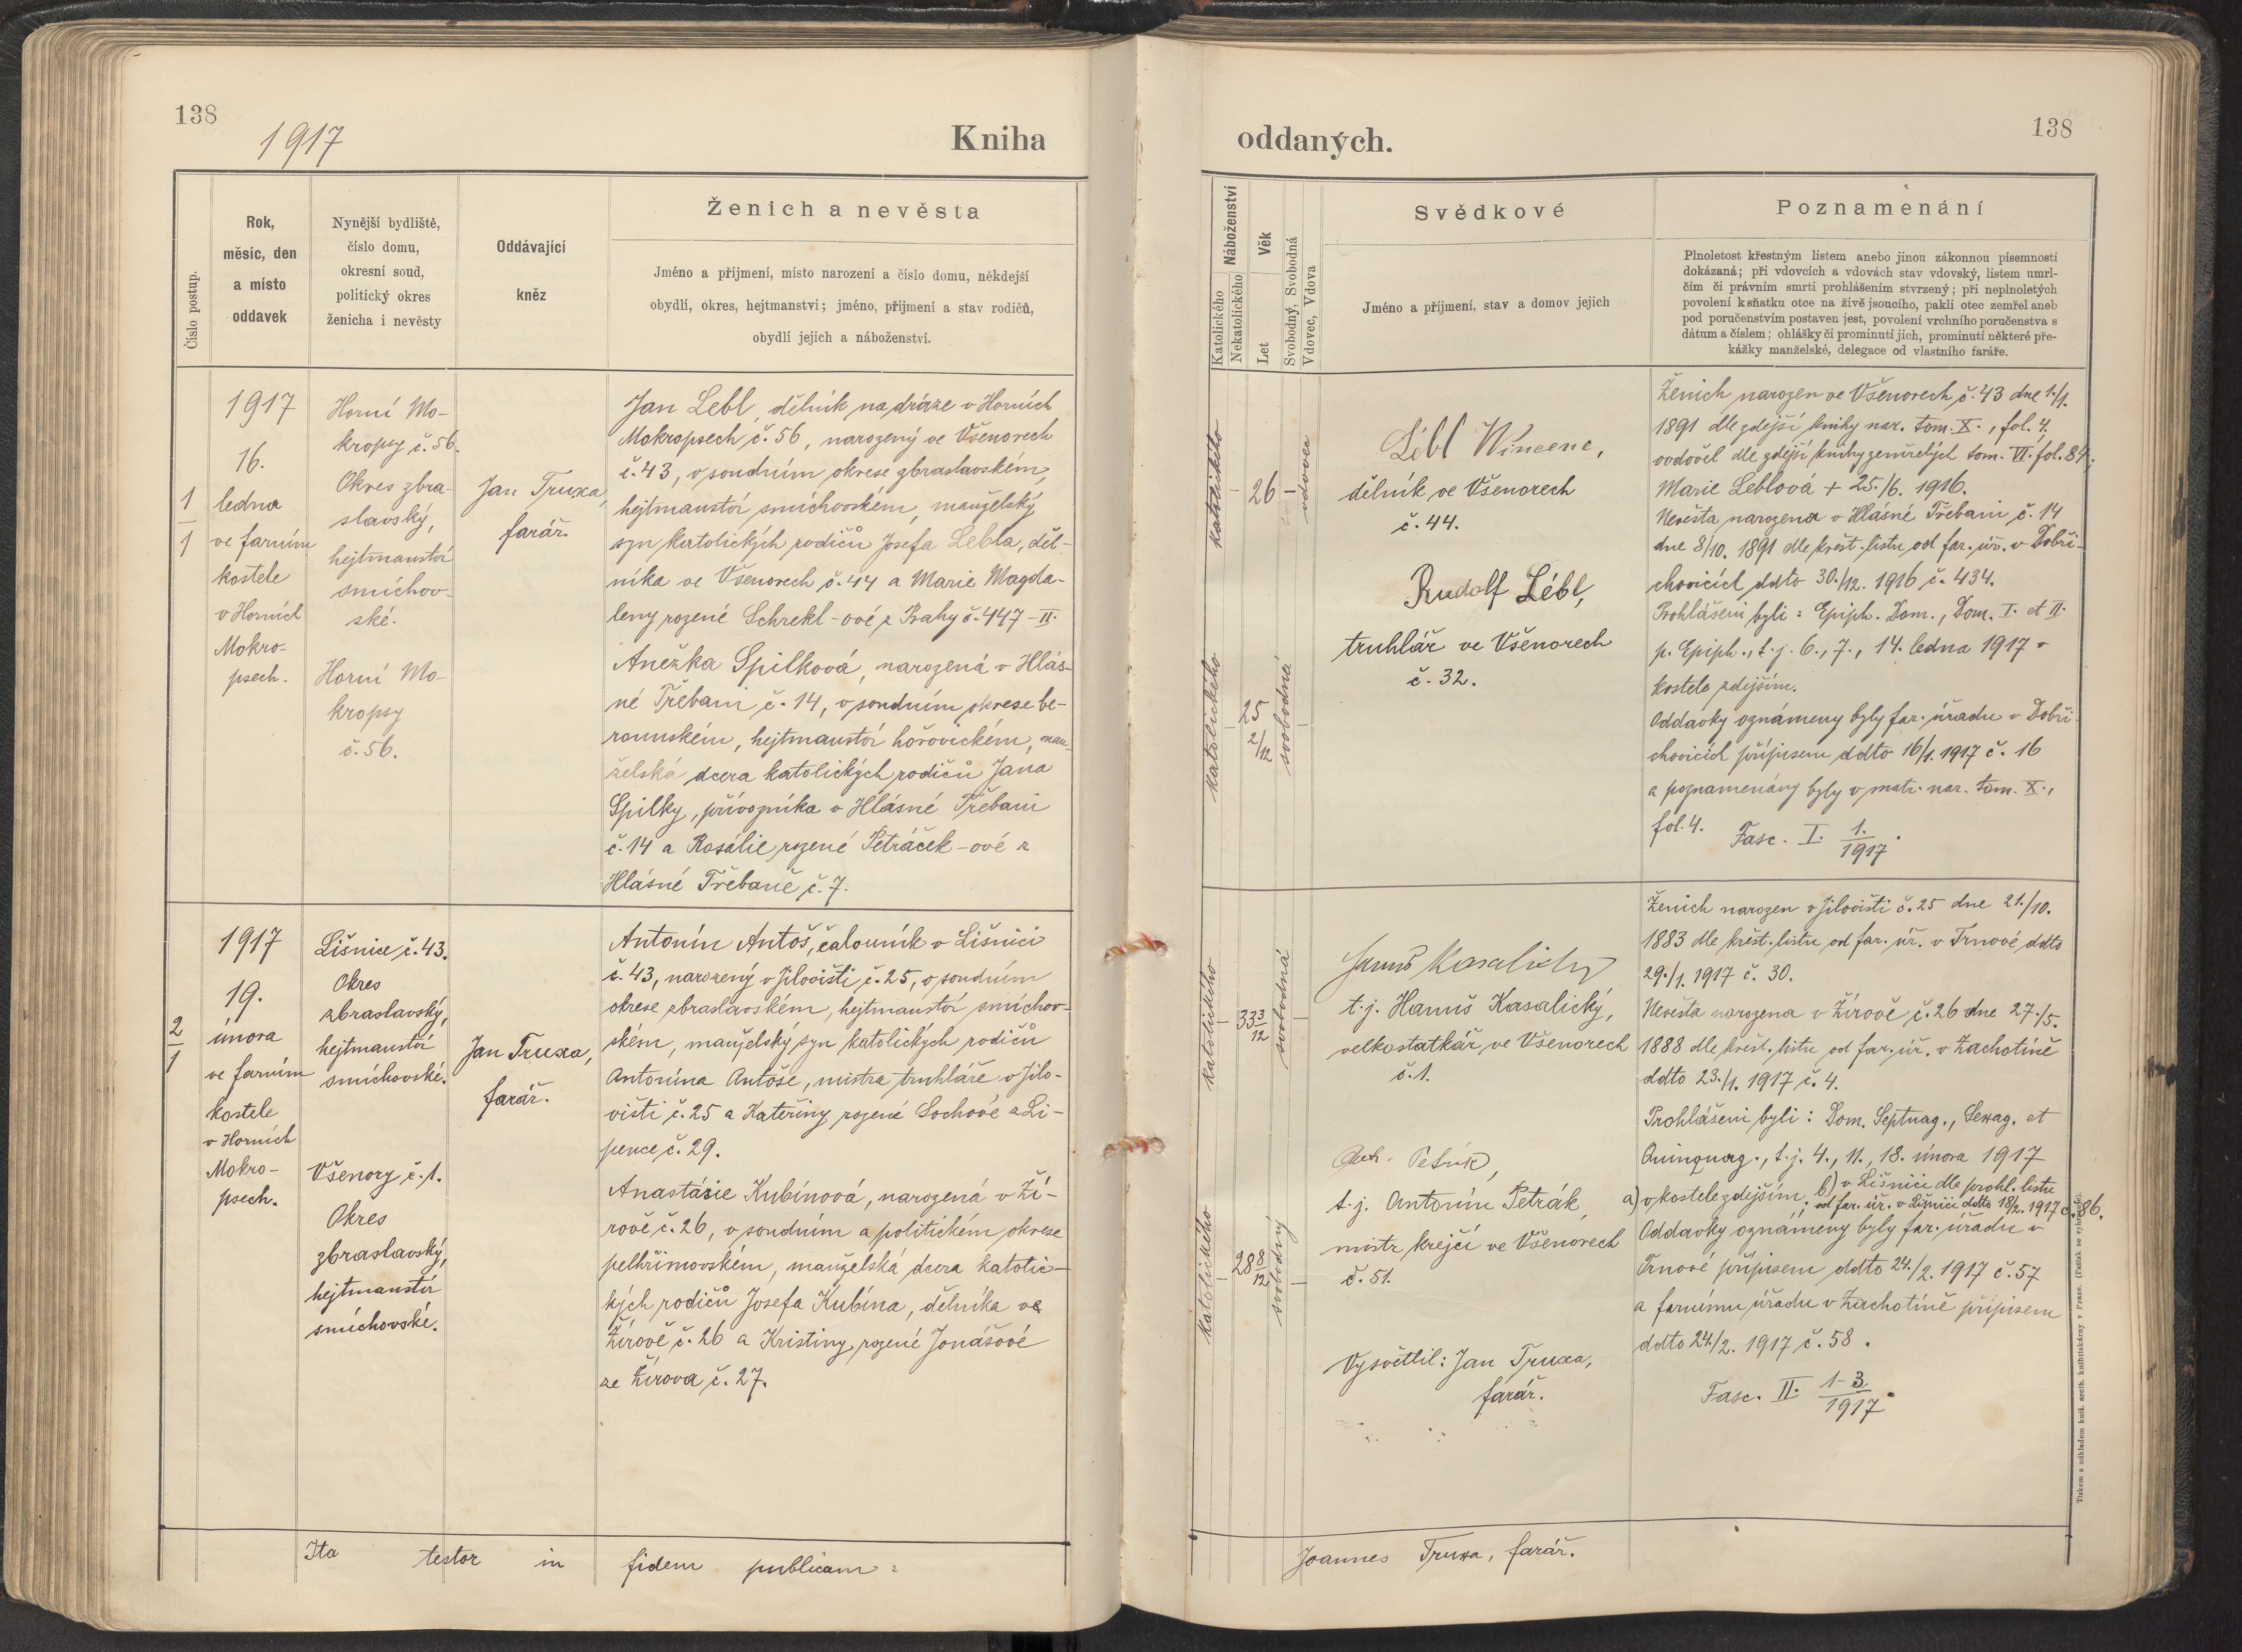 138
1917
Kniha
Číslo postup.
Rok,
měsíc, den
a místo
oddavek
Nynější bydliště,
číslo domu,
okresní soud,
politický okres
ženicha i nevěsty
Oddávající
kněz
Ženich a nevěsta
Jméno a příjmení, místo narození a číslo domu, někdejší
obydlí, okres, hejtmanství; jméno, příjmení a stav rodičů,
obydlí jejich a náboženství.
1
1
1917
16.
ledna
ve farním
kostele
v Horních
Mokro-
psech.
Horní Mo-
kropsy č. 56.
Okres zbra-
slavský,
hejtmanství
smíchov-
ské.
Horní Mo-
kropsy
č. 56.
Jan Truxa,
farář.
Jan Lebl, dělník na dráze v Horních
Mokropsech č. 56, narozený ve Všenorech
č. 43, v soudním okrese zbraslavském,
hejtmanství smíchovském, manželský
syn katolických rodičů Josefa Lebla, děl-
níka ve Všenorech č. 44 a Marie Magda-
leny rozené Schrekl-ové z Prahy č. 447-II.
Anežka Spilková, narozená v Hlás-
né Třebani č. 14, v soudním okrese be-
rounském, hejtmanství hořovickém, man-
želská dcera katolických rodičů Jana
Spilky, přívozníka v Hlásné Třebani
č. 14 a Rosálie rozené Petráček-ové z
Hlásné Třebaně č. 7.
2
1
1917
19.
února
ve farním
kostele
v Horních
Mokro-
psech.
Lišnice č. 43.
Okres
zbraslavský,
hejtmanství
smíchovské.
Všenory č. 1.
Okres
zbraslavský,
hejtmanství
smíchovské.
Jan Truxa,
farář.
Antonín Antoš, čalouník v Lišnici
č. 43, narozený v Jilovišti č. 25, v soudním
okrese zbraslavském, hejtmanství smíchov-
ském, manželský syn katolických rodičů
Antonína Antoše, mistra truhláře v Jilo-
višti č. 25 a Kateřiny rozené Sochové z Li-
pence č. 29.
Anastásie Kubínová, narozená v Ží-
rově č. 26, v soudním a politickém okrese
pelhřimovském, manželská dcera katolic-
kých rodičů Josefa Kubína, dělníka ve
Žírově č. 26 a Kristiny rozené Jonášové
ze Žírova č. 27.
Ita testor in fidem publicam:
oddaných.
138
Náboženství
Katolického
Nekatolického
Věk
Let
Svobodný, Svobodná
Vdovec, Vdova
Svědkové
Jméno a příjmení, stav a domov jejich
Poznamenání
Plnoletost křestným listem anebo jinou zákonnou písemností
dokázaná; při vdovcích a vdovách stav vdovský, listem umrl-
čím či právním smrti prohlášením stvrzený; při neplnoletých
povolení k sňatku otce na živě jsoucího, pakli otec zemřel aneb
pod poručenstvím postaven jest, povolení vrchního poručenstva s
dátum a číslem; ohlášky či prominutí jich, prominutí některé pře-
kážky manželské, delegace od vlastního faráře.
katolického
26
vdovec
katolického
25
2/12
svobodná
Lébl Wincenc,
dělník ve Všenorech
č. 44.
Rudolf Lébl,
truhlář ve Všenorech
č. 32.
Ženich narozen ve Všenorech č. 43 dne 1./1.
1891 dle zdejší knihy nar. tom. X., fol. 4.
ovdověl dle zdejší knihy zemřelých tom. VI. fol. 84;
Marie Leblová + 25./6. 1916.
Nevěsta narozena v Hlásné Třebani č. 14
dne 8/10. 1891 dle křest. listu od far. úř. v Dobři-
chovicích ddto 30./12. 1916 č. 434.
Prohlášeni byli: Epiph. Dom., Dom. I. et II.
p. Epiph., t. j. 6., 7., 14. ledna 1917 v
kostele zdejším.
Oddavky oznámeny byly far. úřadu v Dobři-
chovicích přípisem ddto 16/1. 1917 č. 16
a poznamenány byly v matr. nar. tom. X.,
fol. 4. Fasc. I. 1./1917.
katolického
33 3/12
svobodná
katolického
28 8/12
svobodný
t. j. Hanuš Kasalický,
velkostatkář ve Všenorech
č. 1.
t. j. Antonín Petrák,
mistr krejčí ve Všenorech
č. 51.
Vysvětlil: Jan Truxa,
farář.
Ženich narozen v Jilovišti č. 25 dne 21./10.
1883 dle křest. listu od far. úř. v Trnové ddto
29./1. 1917 č. 30.
Nevěsta narozena v Žírově č. 26 dne 27./5.
1888 dle křest. listu od far. úř. v Zachotíně
ddto 23./1. 1917 č. 4.
Prohlášeni byli: Dom. Septuag., Sexag. et
Quinquag., t. j. 4., 11., 18. února 1917
a) v kostele zdejším; b) v Lišnici dle prohl. listu
od far. úř. v Lišnici ddto 18/2. 1917 č. 86.
Oddavky oznámeny byly far. úřadu v
Trnové přípisem ddto 24./2. 1917 č. 57
a farnímu úřadu v Zachotíně přípisem
ddto 24./2. 1917 č. 58.
Fasc. II. 1-3/1917.
Joannes Truxa, farář.